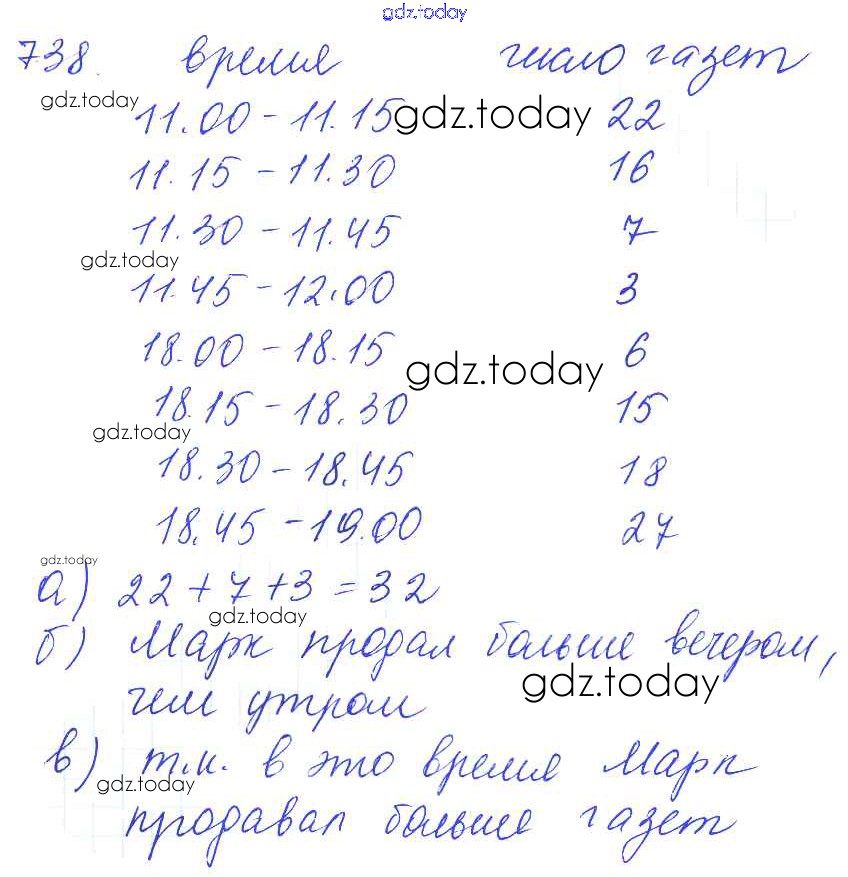 gdz.today
738. время число газет
gdz.today
11.00 - 11.15 gdz.today 22
11.15 - 11.30 16
11.30 - 11.45 7
gdz.today
11.45 - 12.00 3
18.00 - 18.15 6
gdz.today
18.15 - 18.30 15
gdz.today
18.30 - 18.45 18
18.45 - 19.00 27
gdz.today
а) 22 + 7 + 3 = 32
gdz.today
б) Марк продал больше вечером,
gdz.today
чем утром
в) т.к. в это время Марк
gdz.today
продавал больше газет